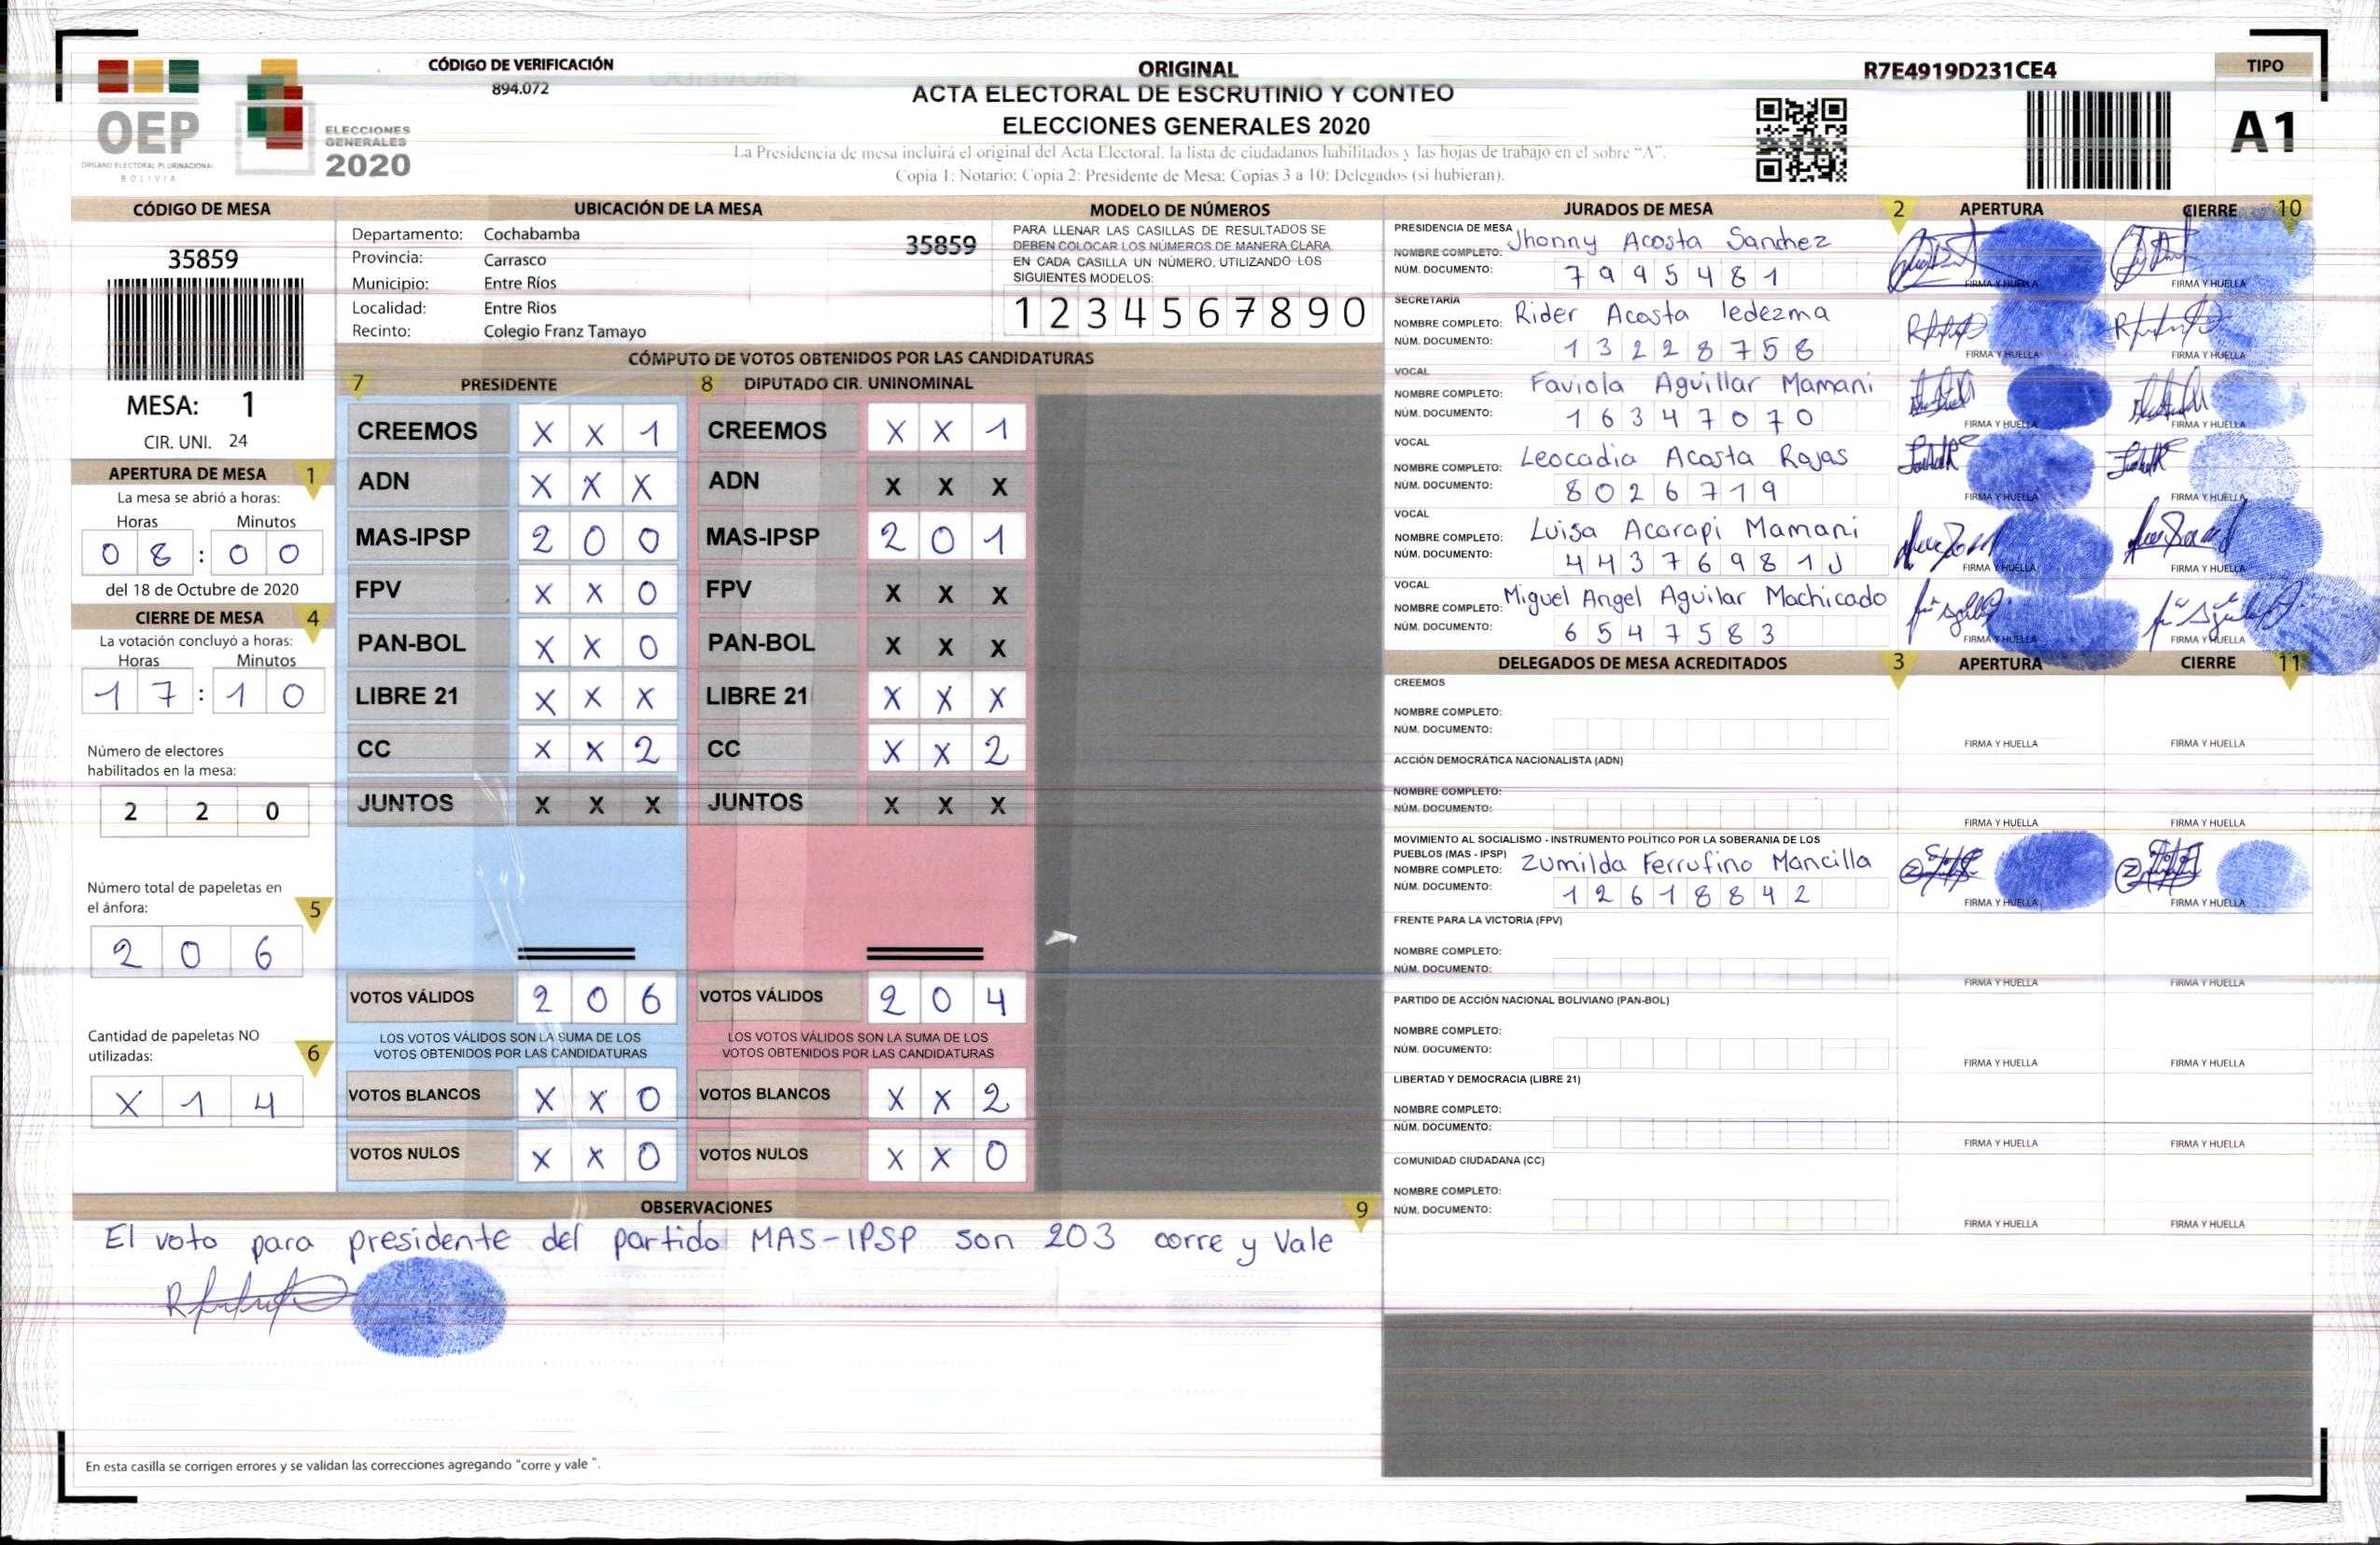 OEP
ÓRGANO ELECTORAL PLURINACIONAL
BOLIVIA
ELECCIONES
GENERALES
2020
CÓDIGO DE VERIFICACIÓN
894.072
ORIGINAL
ACTA ELECTORAL DE ESCRUTINIO Y CONTEO
ELECCIONES GENERALES 2020
La Presidencia de mesa incluirá el original del Acta Electoral, la lista de ciudadanos habilitados y las hojas de trabajo en el sobre "A".
Copia 1: Notario: Copia 2: Presidente de Mesa: Copias 3 a 10: Delegados (si hubieran).
R7E4919D231CE4
TIPO
A1
CÓDIGO DE MESA
35859
MESA: 1
CIR. UNI. 24
APERTURA DE MESA 1
La mesa se abrió a horas:
Horas Minutos
0 8 : 0 0
del 18 de Octubre de 2020
CIERRE DE MESA 4
La votación concluyó a horas:
Horas Minutos
1 7 : 1 0
Número de electores
habilitados en la mesa:
2 2 0
Número total de papeletas en
el ánfora: 5
2 0 6
Cantidad de papeletas NO
utilizadas: 6
X 1 4
UBICACIÓN DE LA MESA
Departamento: Cochabamba
35859
Provincia: Carrasco
Municipio: Entre Ríos
Localidad: Entre Rios
Recinto: Colegio Franz Tamayo
MODELO DE NÚMEROS
PARA LLENAR LAS CASILLAS DE RESULTADOS SE
DEBEN COLOCAR LOS NÚMEROS DE MANERA CLARA.
EN CADA CASILLA UN NÚMERO, UTILIZANDO LOS
SIGUIENTES MODELOS:
1 2 3 4 5 6 7 8 9 0
CÓMPUTO DE VOTOS OBTENIDOS POR LAS CANDIDATURAS
7 PRESIDENTE 8 DIPUTADO CIR. UNINOMINAL
CREEMOS X X 1 CREEMOS X X 1
ADN X X X ADN X X X
MAS-IPSP 2 0 0 MAS-IPSP 2 0 1
FPV X X 0 FPV X X X
PAN-BOL X X 0 PAN-BOL X X X
LIBRE 21 X X X LIBRE 21 X X X
CC X X 2 CC X X 2
JUNTOS X X X JUNTOS X X X
VOTOS VÁLIDOS 2 0 6 VOTOS VÁLIDOS 2 0 4
LOS VOTOS VÁLIDOS SON LA SUMA DE LOS LOS VOTOS VÁLIDOS SON LA SUMA DE LOS
VOTOS OBTENIDOS POR LAS CANDIDATURAS VOTOS OBTENIDOS POR LAS CANDIDATURAS
VOTOS BLANCOS X X 0 VOTOS BLANCOS X X 2
VOTOS NULOS X X 0 VOTOS NULOS X X 0
OBSERVACIONES 9
El voto para presidente del partido MAS-IPSP son 203 corre y Vale
En esta casilla se corrigen errores y se validan las correcciones agregando "corre y vale ".
JURADOS DE MESA 2 APERTURA CIERRE 10
PRESIDENCIA DE MESA
NOMBRE COMPLETO: Jhonny Acosta Sanchez
NÚM. DOCUMENTO: 7 9 9 5 4 8 1
FIRMA Y HUELLA FIRMA Y HUELLA
SECRETARIA
NOMBRE COMPLETO: Rider Acosta ledezma
NÚM. DOCUMENTO: 1 3 2 2 8 7 5 8
FIRMA Y HUELLA FIRMA Y HUELLA
VOCAL
NOMBRE COMPLETO: Faviola Aguillar Mamani
NÚM. DOCUMENTO: 1 6 3 4 7 0 7 0
FIRMA Y HUELLA FIRMA Y HUELLA
VOCAL
NOMBRE COMPLETO: Leocadia Acosta Rojas
NÚM. DOCUMENTO: 8 0 2 6 7 1 9
FIRMA Y HUELLA FIRMA Y HUELLA
VOCAL
NOMBRE COMPLETO: Luisa Acarapi Mamani
NÚM. DOCUMENTO: 4 4 3 7 6 9 8 1 J
FIRMA Y HUELLA FIRMA Y HUELLA
VOCAL
NOMBRE COMPLETO: Miguel Angel Aguilar Machicado
NÚM. DOCUMENTO: 6 5 4 7 5 8 3
FIRMA Y HUELLA FIRMA Y HUELLA
DELEGADOS DE MESA ACREDITADOS 3 APERTURA CIERRE 11
CREEMOS
NOMBRE COMPLETO:
NÚM. DOCUMENTO:
FIRMA Y HUELLA FIRMA Y HUELLA
ACCIÓN DEMOCRÁTICA NACIONALISTA (ADN)
NOMBRE COMPLETO:
NÚM. DOCUMENTO:
FIRMA Y HUELLA FIRMA Y HUELLA
MOVIMIENTO AL SOCIALISMO - INSTRUMENTO POLÍTICO POR LA SOBERANIA DE LOS
PUEBLOS (MAS - IPSP)
NOMBRE COMPLETO: Zumilda Ferrufino Mancilla
NÚM. DOCUMENTO: 1 2 6 1 8 8 4 2
FIRMA Y HUELLA FIRMA Y HUELLA
FRENTE PARA LA VICTORIA (FPV)
NOMBRE COMPLETO:
NÚM. DOCUMENTO:
FIRMA Y HUELLA FIRMA Y HUELLA
PARTIDO DE ACCIÓN NACIONAL BOLIVIANO (PAN-BOL)
NOMBRE COMPLETO:
NÚM. DOCUMENTO:
FIRMA Y HUELLA FIRMA Y HUELLA
LIBERTAD Y DEMOCRACIA (LIBRE 21)
NOMBRE COMPLETO:
NÚM. DOCUMENTO:
FIRMA Y HUELLA FIRMA Y HUELLA
COMUNIDAD CIUDADANA (CC)
NOMBRE COMPLETO:
NÚM. DOCUMENTO:
FIRMA Y HUELLA FIRMA Y HUELLA